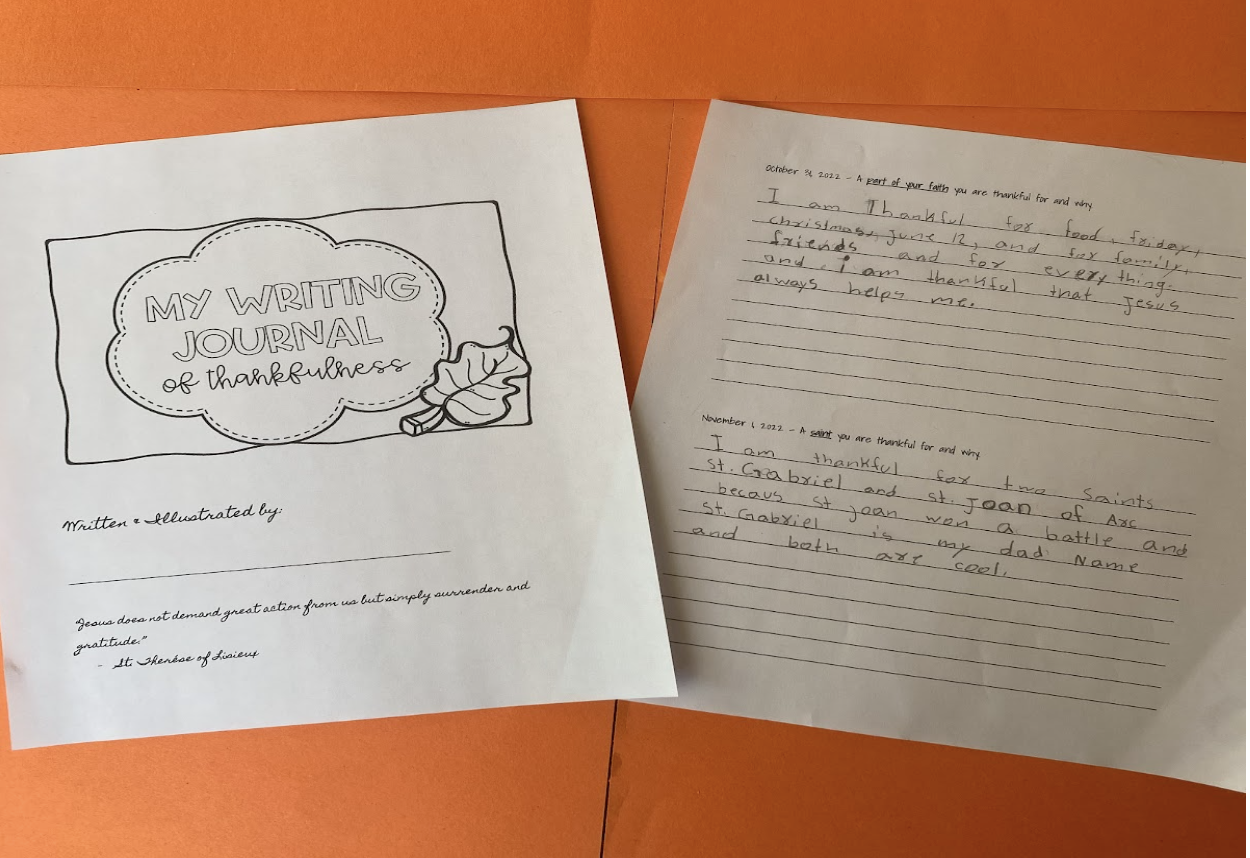 MY WRITING
JOURNAL
of thankfulness
Written & Illustrated by:
"Jesus does not demand great action from us but simply surrender and
gratitude."
- St. Thérèse of Lisieux
October 31, 2022 - A part of your faith you are thankful for and why
I am Thankful for food, friday,
christmas, june 12, and for family,
friends and for every thing.
and i am thankful that jesus
always helps me.
November 1, 2022 - A saint you are thankful for and why
I am thankful for two Saints
St. Gabriel and st. Joan of Arc
becaus st joan won a battle and
St. Gabriel is my dad Name
and both are cool.